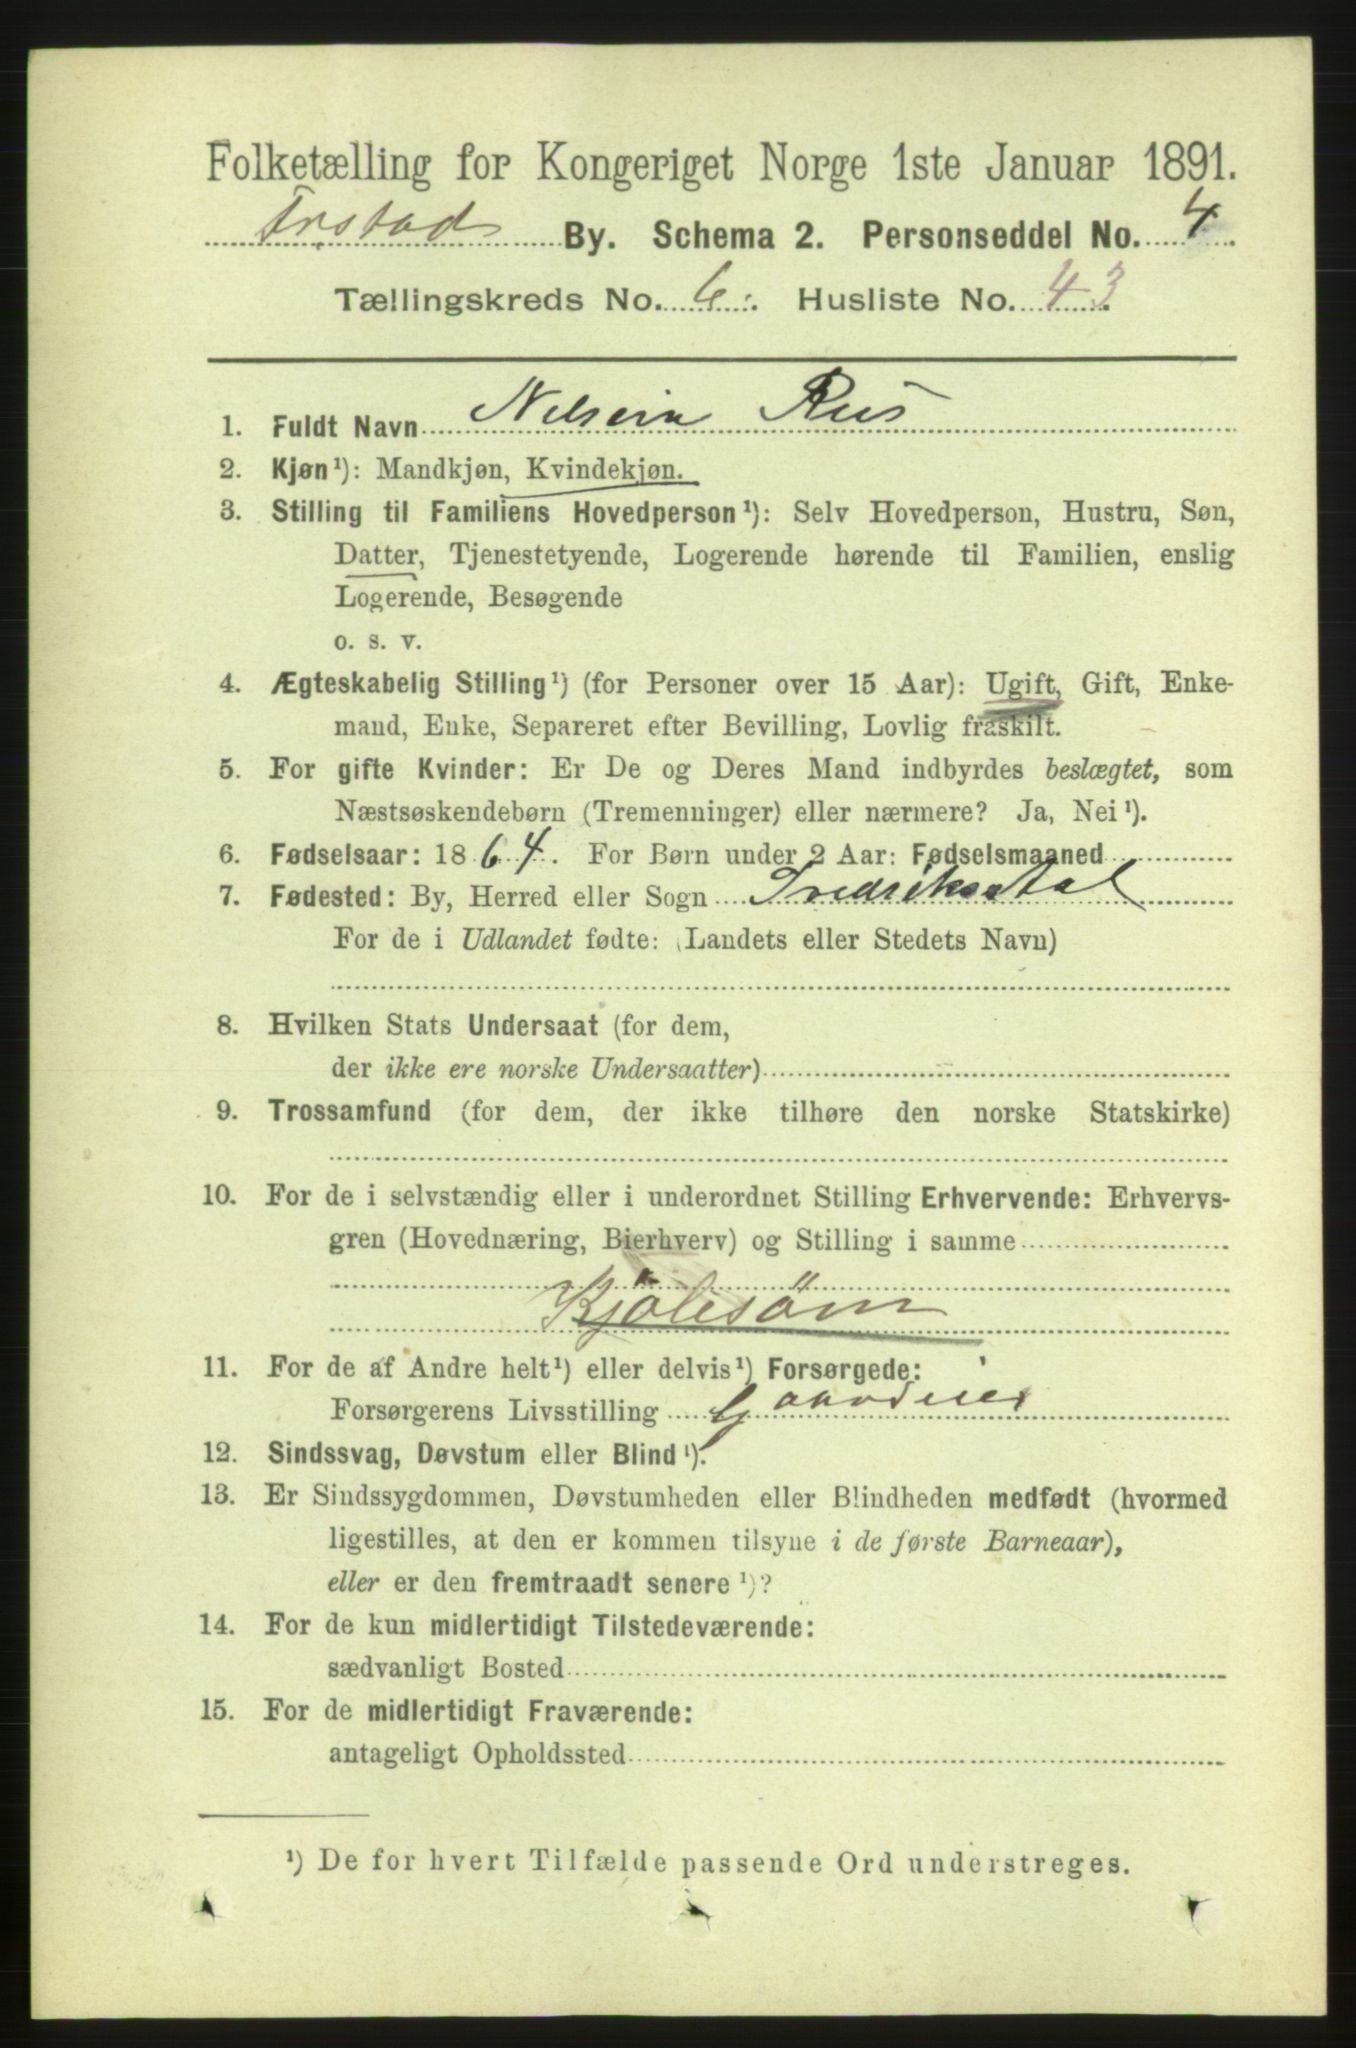 Folketælling for Kongeriget Norge 1ste Januar 1891.
By. Schema 2. Personseddel No. 4
Tællingskreds No. 6. Husliste No. 43.
1. Fuldt Navn
2. Kjøn¹): Mandkjøn, Kvindekjøn.
3. Stilling til Familiens Hovedperson¹): Selv Hovedperson, Hustru, Søn,
Datter, Tjenestetyende, Logerende hørende til Familien, enslig
Logerende, Besøgende
o. s. v.
4. Ægteskabelig Stilling¹) (for Personer over 15 Aar): Ugift, Gift, Enke-
mand, Enke, Separeret efter Bevilling, Lovlig fraskilt.
5. For gifte Kvinder: Er De og Deres Mand indbyrdes beslægtet, som
Næstsøskendebørn (Tremenninger) eller nærmere? Ja, Nei¹).
6. Fødselsaar: 1864. For Børn under 2 Aar: Fødselsmaaned
7. Fødested: By, Herred eller Sogn
For de i Udlandet fødte: (Landets eller Stedets Navn)
8. Hvilken Stats Undersaat (for dem,
der ikke ere norske Undersaatter)
9. Trossamfund (for dem, der ikke tilhøre den norske Statskirke)
10. For de i selvstændig eller i underordnet Stilling Erhvervende: Erhvervs-
gren (Hovednæring, Bierhverv) og Stilling i samme
Kjölesöm
11. For de af Andre helt¹) eller delvis¹) Forsørgede:
Forsørgerens Livsstilling Gaardeier
12. Sindssvag, Døvstum eller Blind¹).
13. Er Sindssygdommen, Døvstumheden eller Blindheden medfødt (hvormed
ligestilles, at den er kommen tilsyne i de første Barneaar),
eller er den fremtraadt senere¹)?
14. For de kun midlertidigt Tilstedeværende:
sædvanligt Bosted
15. For de midlertidigt Fraværende:
antageligt Opholdssted
¹) De for hvert Tilfælde passende Ord understreges.